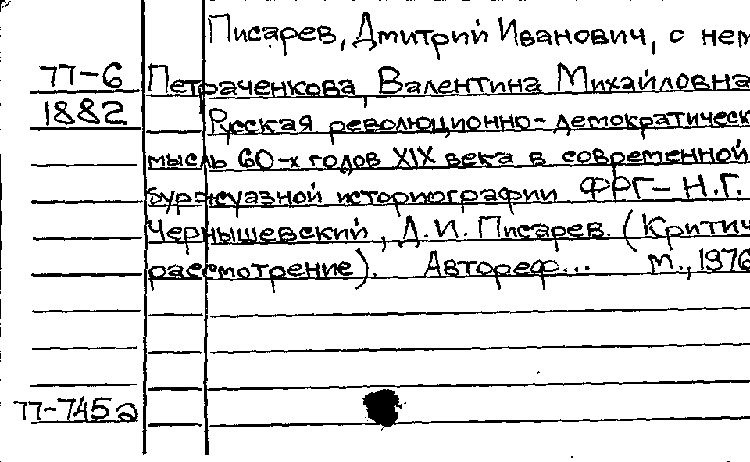 Писарев, Дмитрий Иванович, о нем
77-6 Петраченкова, Валентина Михайловна
1882 Русская революционно-демократическ
мысль 60-х годов XIX века в современной
буржуазной историографии ФРГ - Н.Г.
Чернышевский, Д.И. Писарев. (Критич
рассмотрение). Автореф... М., 1976
77-745а